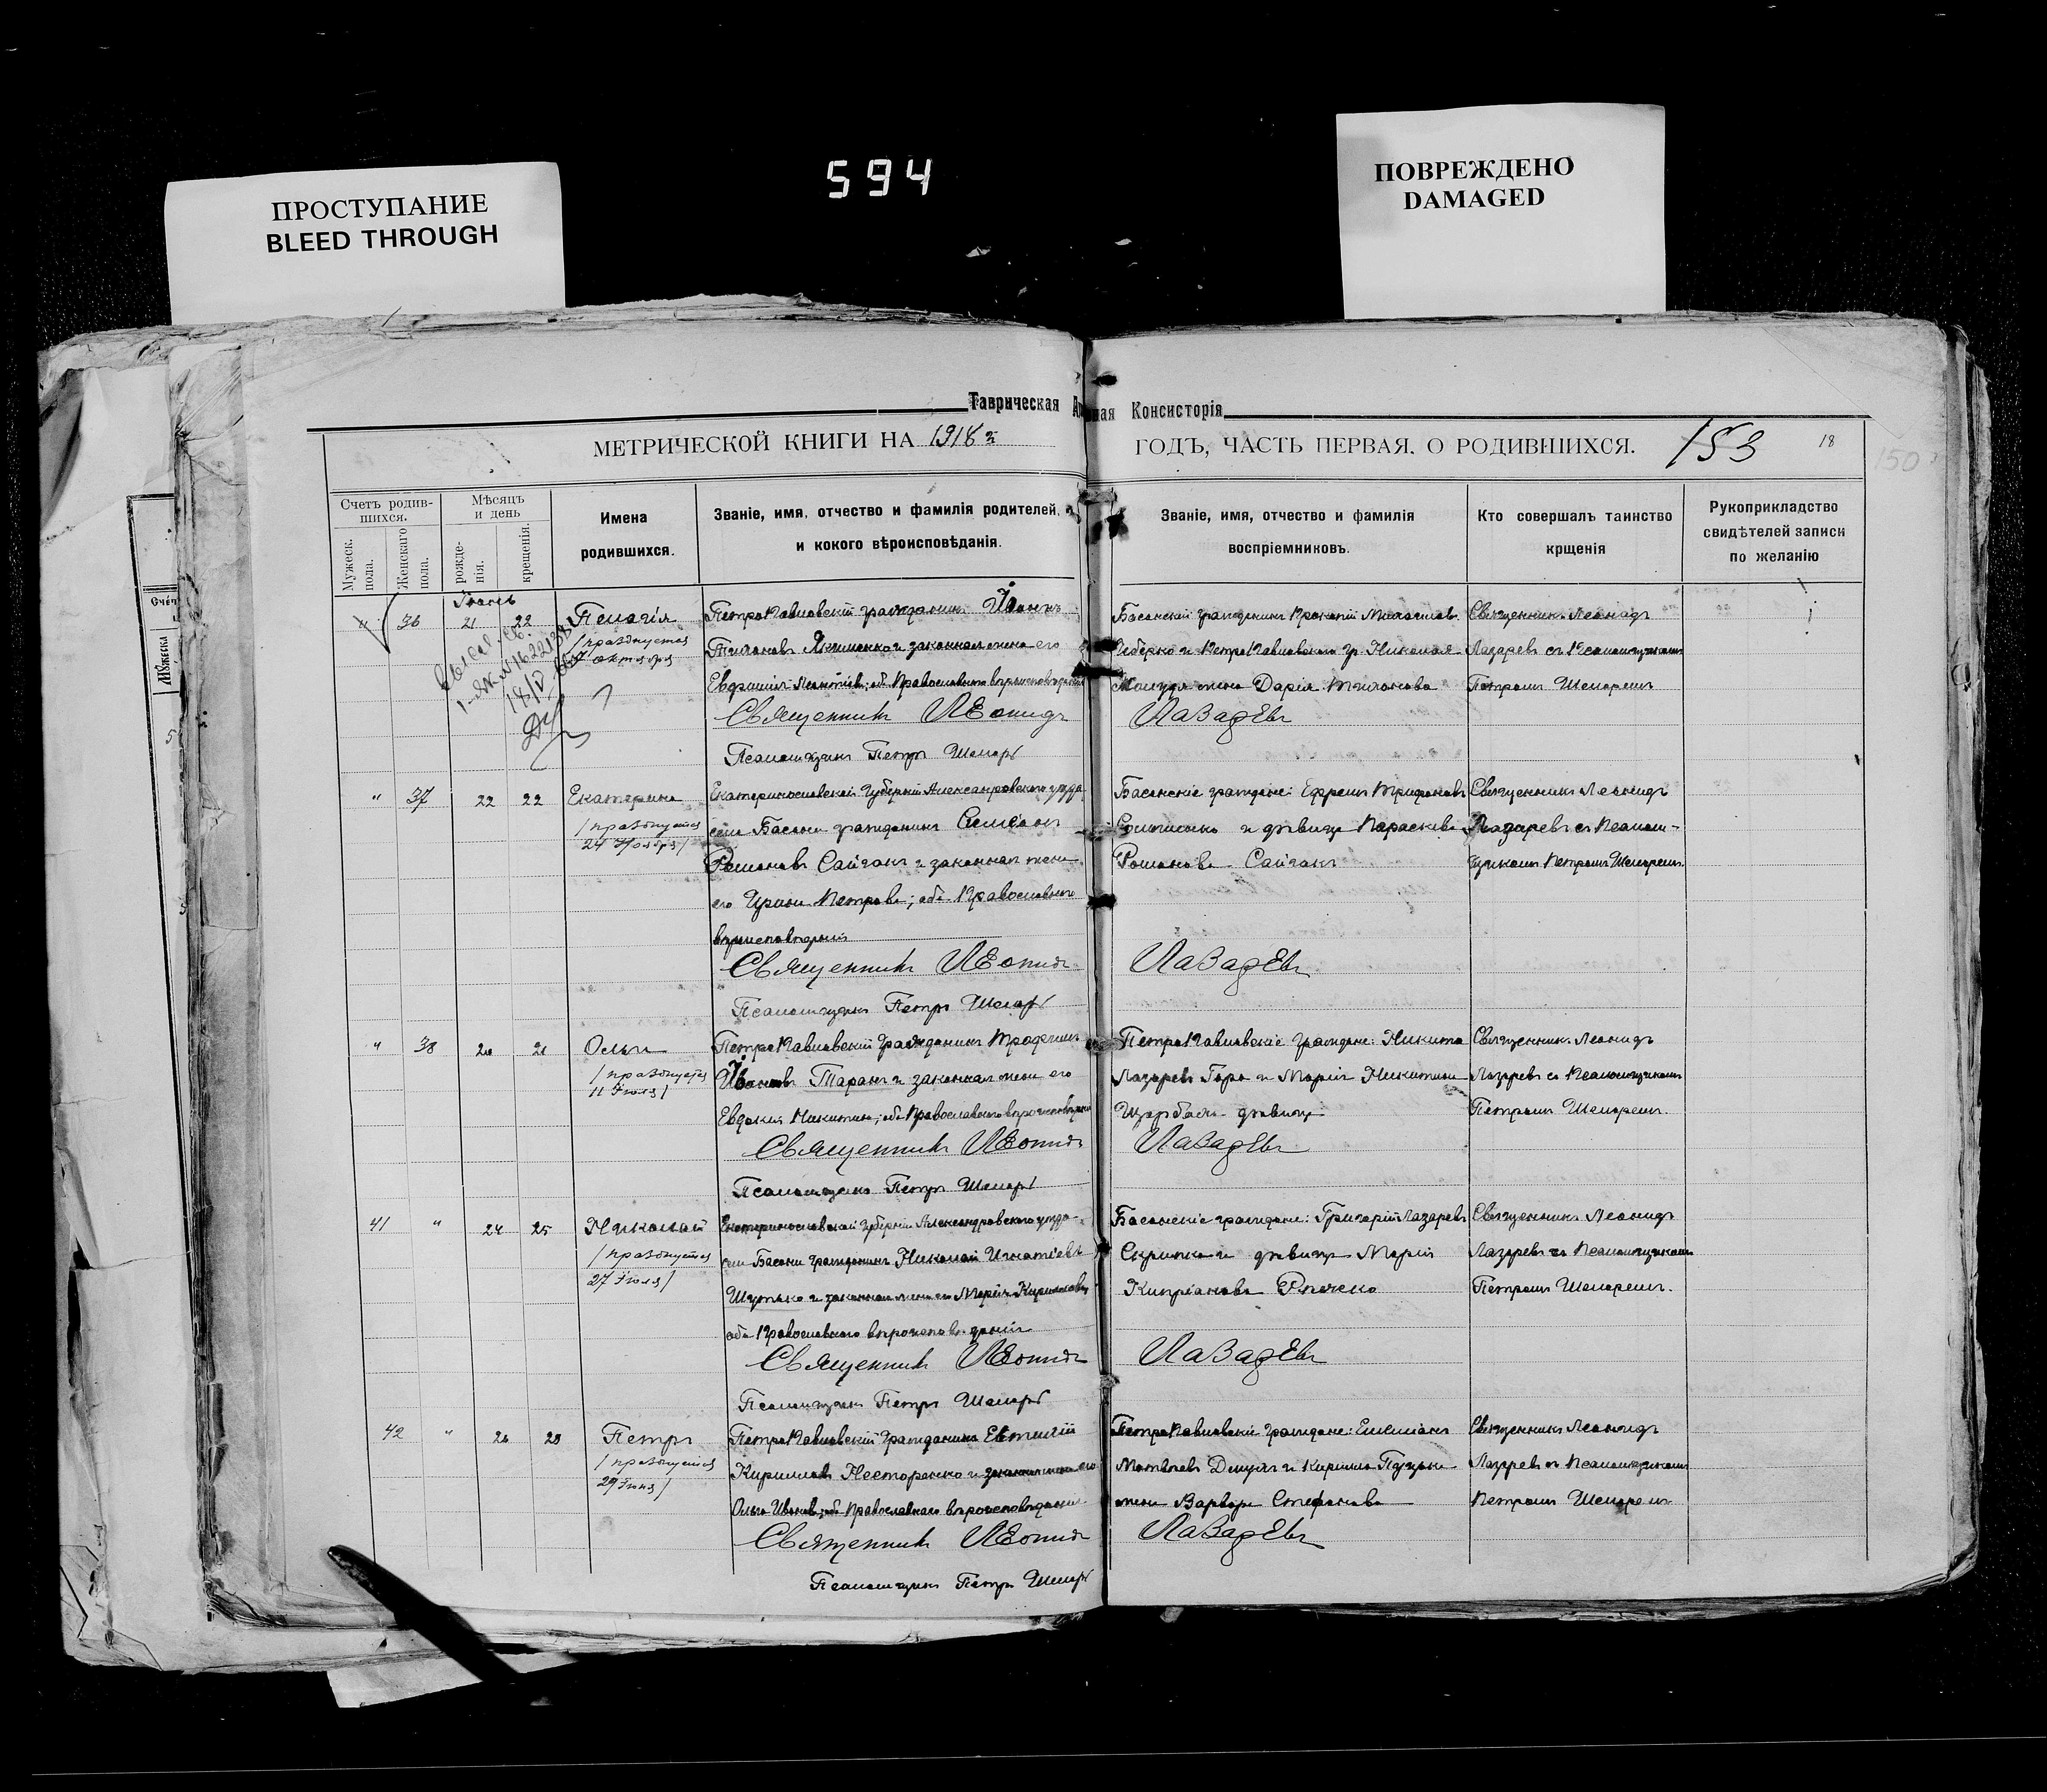 594
ПРОСТУПАНИЕ
BLEED THROUGH
ПОВРЕЖДЕНО
DAMAGED
Таврическая
Консисторія
МЕТРИЧЕСКОЙ КНИГИ НА 1918 г.
ГОДЪ, ЧАСТЬ ПЕРВАЯ. О РОДИВШИХСЯ.
153
18
150
Счетъ родив-
шихся.
Мужеск.
пола.
Женскаго
пола.
Мѣсяцъ
и день
рожде-
нія.
крещенія.
Имена
родившихся.
Званіе, имя, отчество и фамилія родителей,
и кокого вѣроисповѣданія.
Званіе, имя, отчество и фамилія
воспріемниковъ.
Кто совершалъ таинство
крщенія
Рукоприкладство
свидѣтелей записи
по желанію
" 36 21 22 Пелагія
/празднуется
октября
ПетроПавловскій гражданинъ Иванъ
Якименко и законная жена его
Священникъ Леонидъ
Псаломщикъ Петръ Шеларь
Басанскій гражданинъ
и ПетроПавловскаго гр. Николая
жена Дарія
Лазаревъ
Священникъ Леонидъ
Лазаревъ съ Псаломщикомъ
Петромъ Шеларемъ
" 37 22 22 Екатерина
/празднуется
24 Ноября/
Екатеринославской Губерніи Александровского уезда
села Басани гражданинъ
Романовъ Сайганъ и законная жена
его Ирина Петрова; оба Православного
вѣроисповѣданія
Священникъ Леонидъ
Псаломщикъ Петръ Шеларь
Басанскіе граждане: Ефремъ Трифоновъ
и дѣвица Параскева
Романова Сайганъ
Лазаревъ
Священникъ Леонидъ
Лазаревъ съ Псалом-
щикомъ Петромъ Шеларемъ
" 38 20 21 Ольга
/празднуется
11 Іюля/
ПетроПавловскій Гражданинъ Трофимъ
Ивановъ Таранъ и законная жена его
Евдокія Никитина; оба Православного вѣроисповѣданія
Священникъ Леонидъ
Псаломщикъ Петръ Шеларь
ПетроПавловскіе Граждане: Никита
Лазаревъ Гора и Марія Никитина
Щербаха дѣвица
Лазаревъ
Священникъ Леонидъ
Лазаревъ съ Псаломщикомъ
Петромъ Шеларемъ.
41 " 24 25 Николай
/празднуется
27 Іюля/
Екатеринославской Губерніи Александровского уезда
села Басани гражданинъ Николай Игнатіевъ
Шутько и законная жена его Марія
оба Православного вѣроисповѣданія
Священникъ Леонидъ
Псаломщикъ Петръ Шеларь
Басанскіе граждане: Григорій Лазаревъ
Скрипка и дѣвица Марія
Кипріанова
Лазаревъ
Священникъ Леонидъ
Лазаревъ съ Псаломщикомъ
Петромъ Шеларемъ.
42 " 26 28 Петръ
/празднуется
29 Іюня/
ПетроПавловскій Гражданинъ Евтихій
Кирилловъ Несторенко и законная жена его
Ольга Иванова; оба Православного вѣроисповѣданія
Священникъ Леонидъ
Псаломщикъ Петръ Шеларь
ПетроПавловскіе Граждане: Емеліанъ
Матвѣевъ и Кирилла
жена Варвара Стефанова
Лазаревъ
Священникъ Леонидъ
Лазаревъ съ Псаломщикомъ
Петромъ Шеларемъ